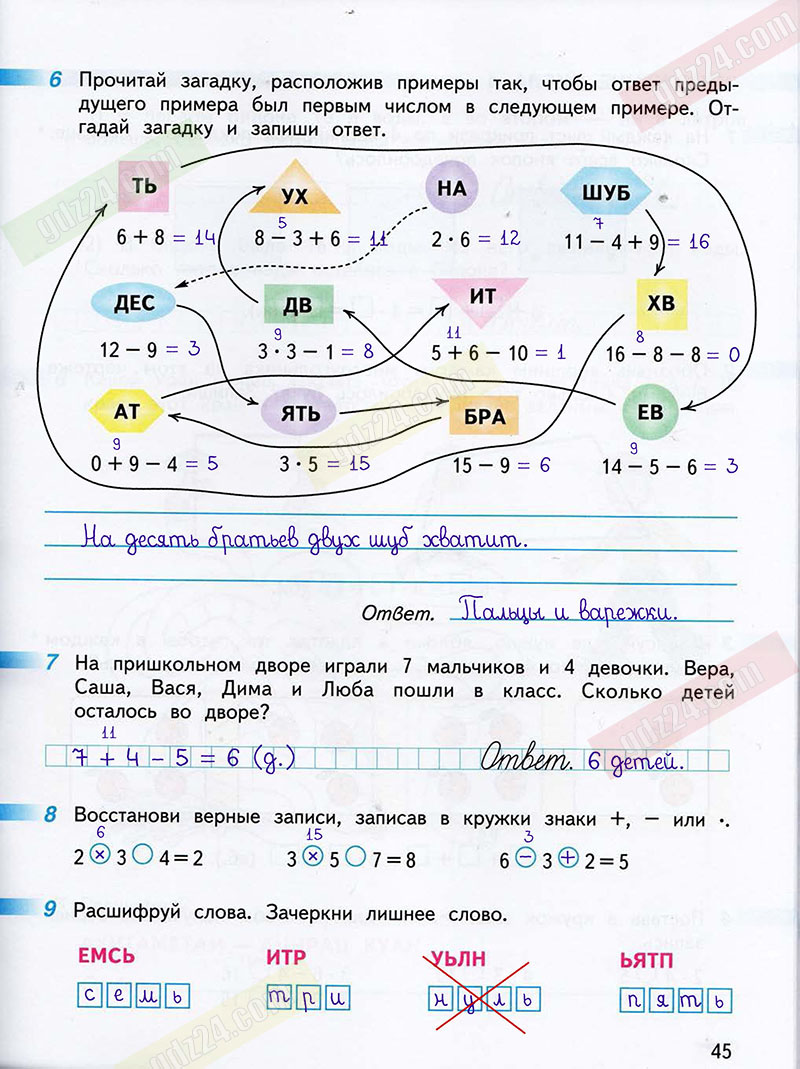 gdz24.com
6 Прочитай загадку, расположив примеры так, чтобы ответ преды-
дущего примера был первым числом в следующем примере. От-
гадай загадку и запиши ответ.
ТЬ УХ НА ШУБ
5 7
6 + 8 = 14 8 − 3 + 6 = 11 2 · 6 = 12 11 − 4 + 9 = 16
ДЕС ДВ ИТ ХВ
9 11 8
12 − 9 = 3 3 · 3 − 1 = 8 5 + 6 − 10 = 1 16 − 8 − 8 = 0
АТ ЯТЬ БРА ЕВ
9 9
0 + 9 − 4 = 5 3 · 5 = 15 15 − 9 = 6 14 − 5 − 6 = 3
gdz24.com
gdz24.com
На десять братьев двух шуб хватит.
Ответ. Пальцы и варежки.
7 На пришкольном дворе играли 7 мальчиков и 4 девочки. Вера,
Саша, Вася, Дима и Люба пошли в класс. Сколько детей
осталось во дворе?
gdz24.com
11
7 + 4 − 5 = 6 (д.) Ответ. 6 детей.
8 Восстанови верные записи, записав в кружки знаки +, − или ·.
6 15 3
2 × 3 ○ 4 = 2 3 × 5 ○ 7 = 8 6 − 3 + 2 = 5
9 Расшифруй слова. Зачеркни лишнее слово.
ЕМСЬ ИТР УЬЛН ЬЯТП
семь три нуль пять
gdz24.com
45